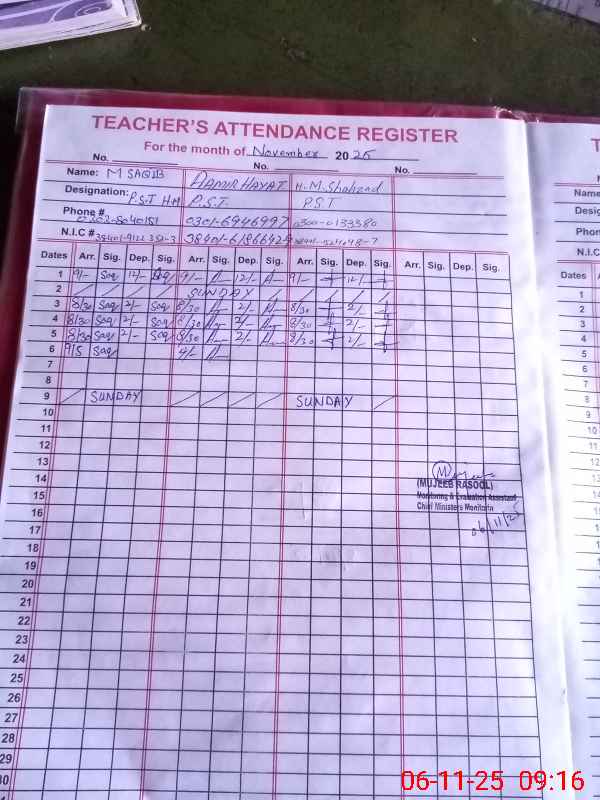 TEACHER'S ATTENDANCE REGISTER
For the month of November 2025
No. No. No.
Name: M SAQIB AAMIR HAYAT H.M. Shahzad
Designation: P.S.T H.M P.S.T. P.S.T
Phone # 0301-6946997 0300-0133380
N.I.C #
Dates Arr. Sig. Dep. Sig. Arr. Sig. Dep. Sig. Arr. Sig. Dep. Sig. Arr. Sig. Dep. Sig.
1 9/- Saq 12/- Saq 9/- 12/- 9/- 12/-
2 SUNDAY
3 8/30 Saq 2/- Saq 8/30 2/- 8/30 2/-
4 8/30 Saq 2/- Saq 8/30 2/- 8/30 2/-
5 8/30 Saq 2/- Saq 8/30 2/- 8/30 2/-
6 9/5 Saq
7
8
9 SUNDAY SUNDAY
10
11
12
13
14
15
16
17
18
19
20
21
22
23
24
25
26
27
28
29
30
(MUJEEB RASOOL)
Monitoring & Evaluation Assistant
Chief Ministers Monitorin
06/11/25
Name
Desig
Phon
N.I.C
Dates A
1
2
3
4
5
6
7
8
9
10
11
12
13
14
15
16
17
18
19
20
21
22
23
24
25
26
27
28
06-11-25 09:16